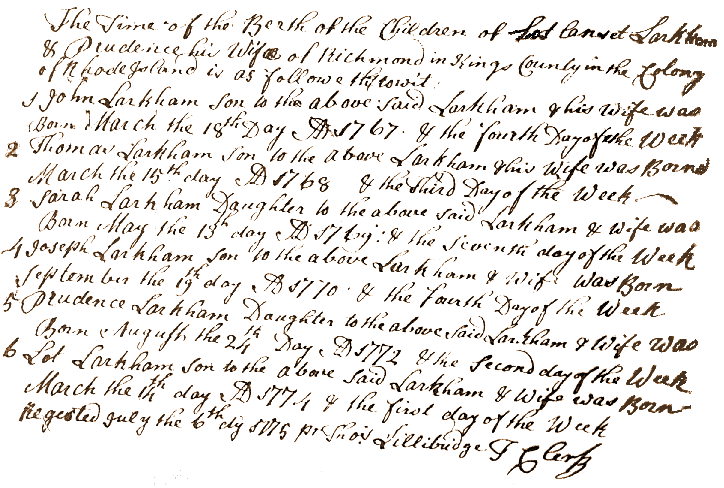 The Time of the Berth of the Children of Lot Larkham
& Prudence his Wife of Richmond in Kings County in the Colony
of Rhode Island is as followeth towit
1 John Larkham Son to the above said Larkham & his Wife was
Born March the 18th Day AD 1767 & the fourth Day of the Week
2 Thomas Larkham Son to the above Larkham & his Wife was Born
March the 15th day AD 1768 & the third Day of the Week
3 Sarah Larkham Daughter to the above said Larkham & wife was
Born May the 13th day AD & the Seventh day of the Week
4 Joseph Larkham Son to the above Larkham & Wife was Born
September the 19th day AD 1770 & the fourth Day of the Week
5 Prudence Larkham Daughter to the above said Larkham & Wife was
Born August the 24th Day AD 1772 & the Second day of the Week
6 Lot Larkham Son to the above said Larkham & Wife was Born
March the 14th day AD 1774 & the first day of the Week
Regested July the 6th dy 1775 pr Thos Lillibridge T Clerk